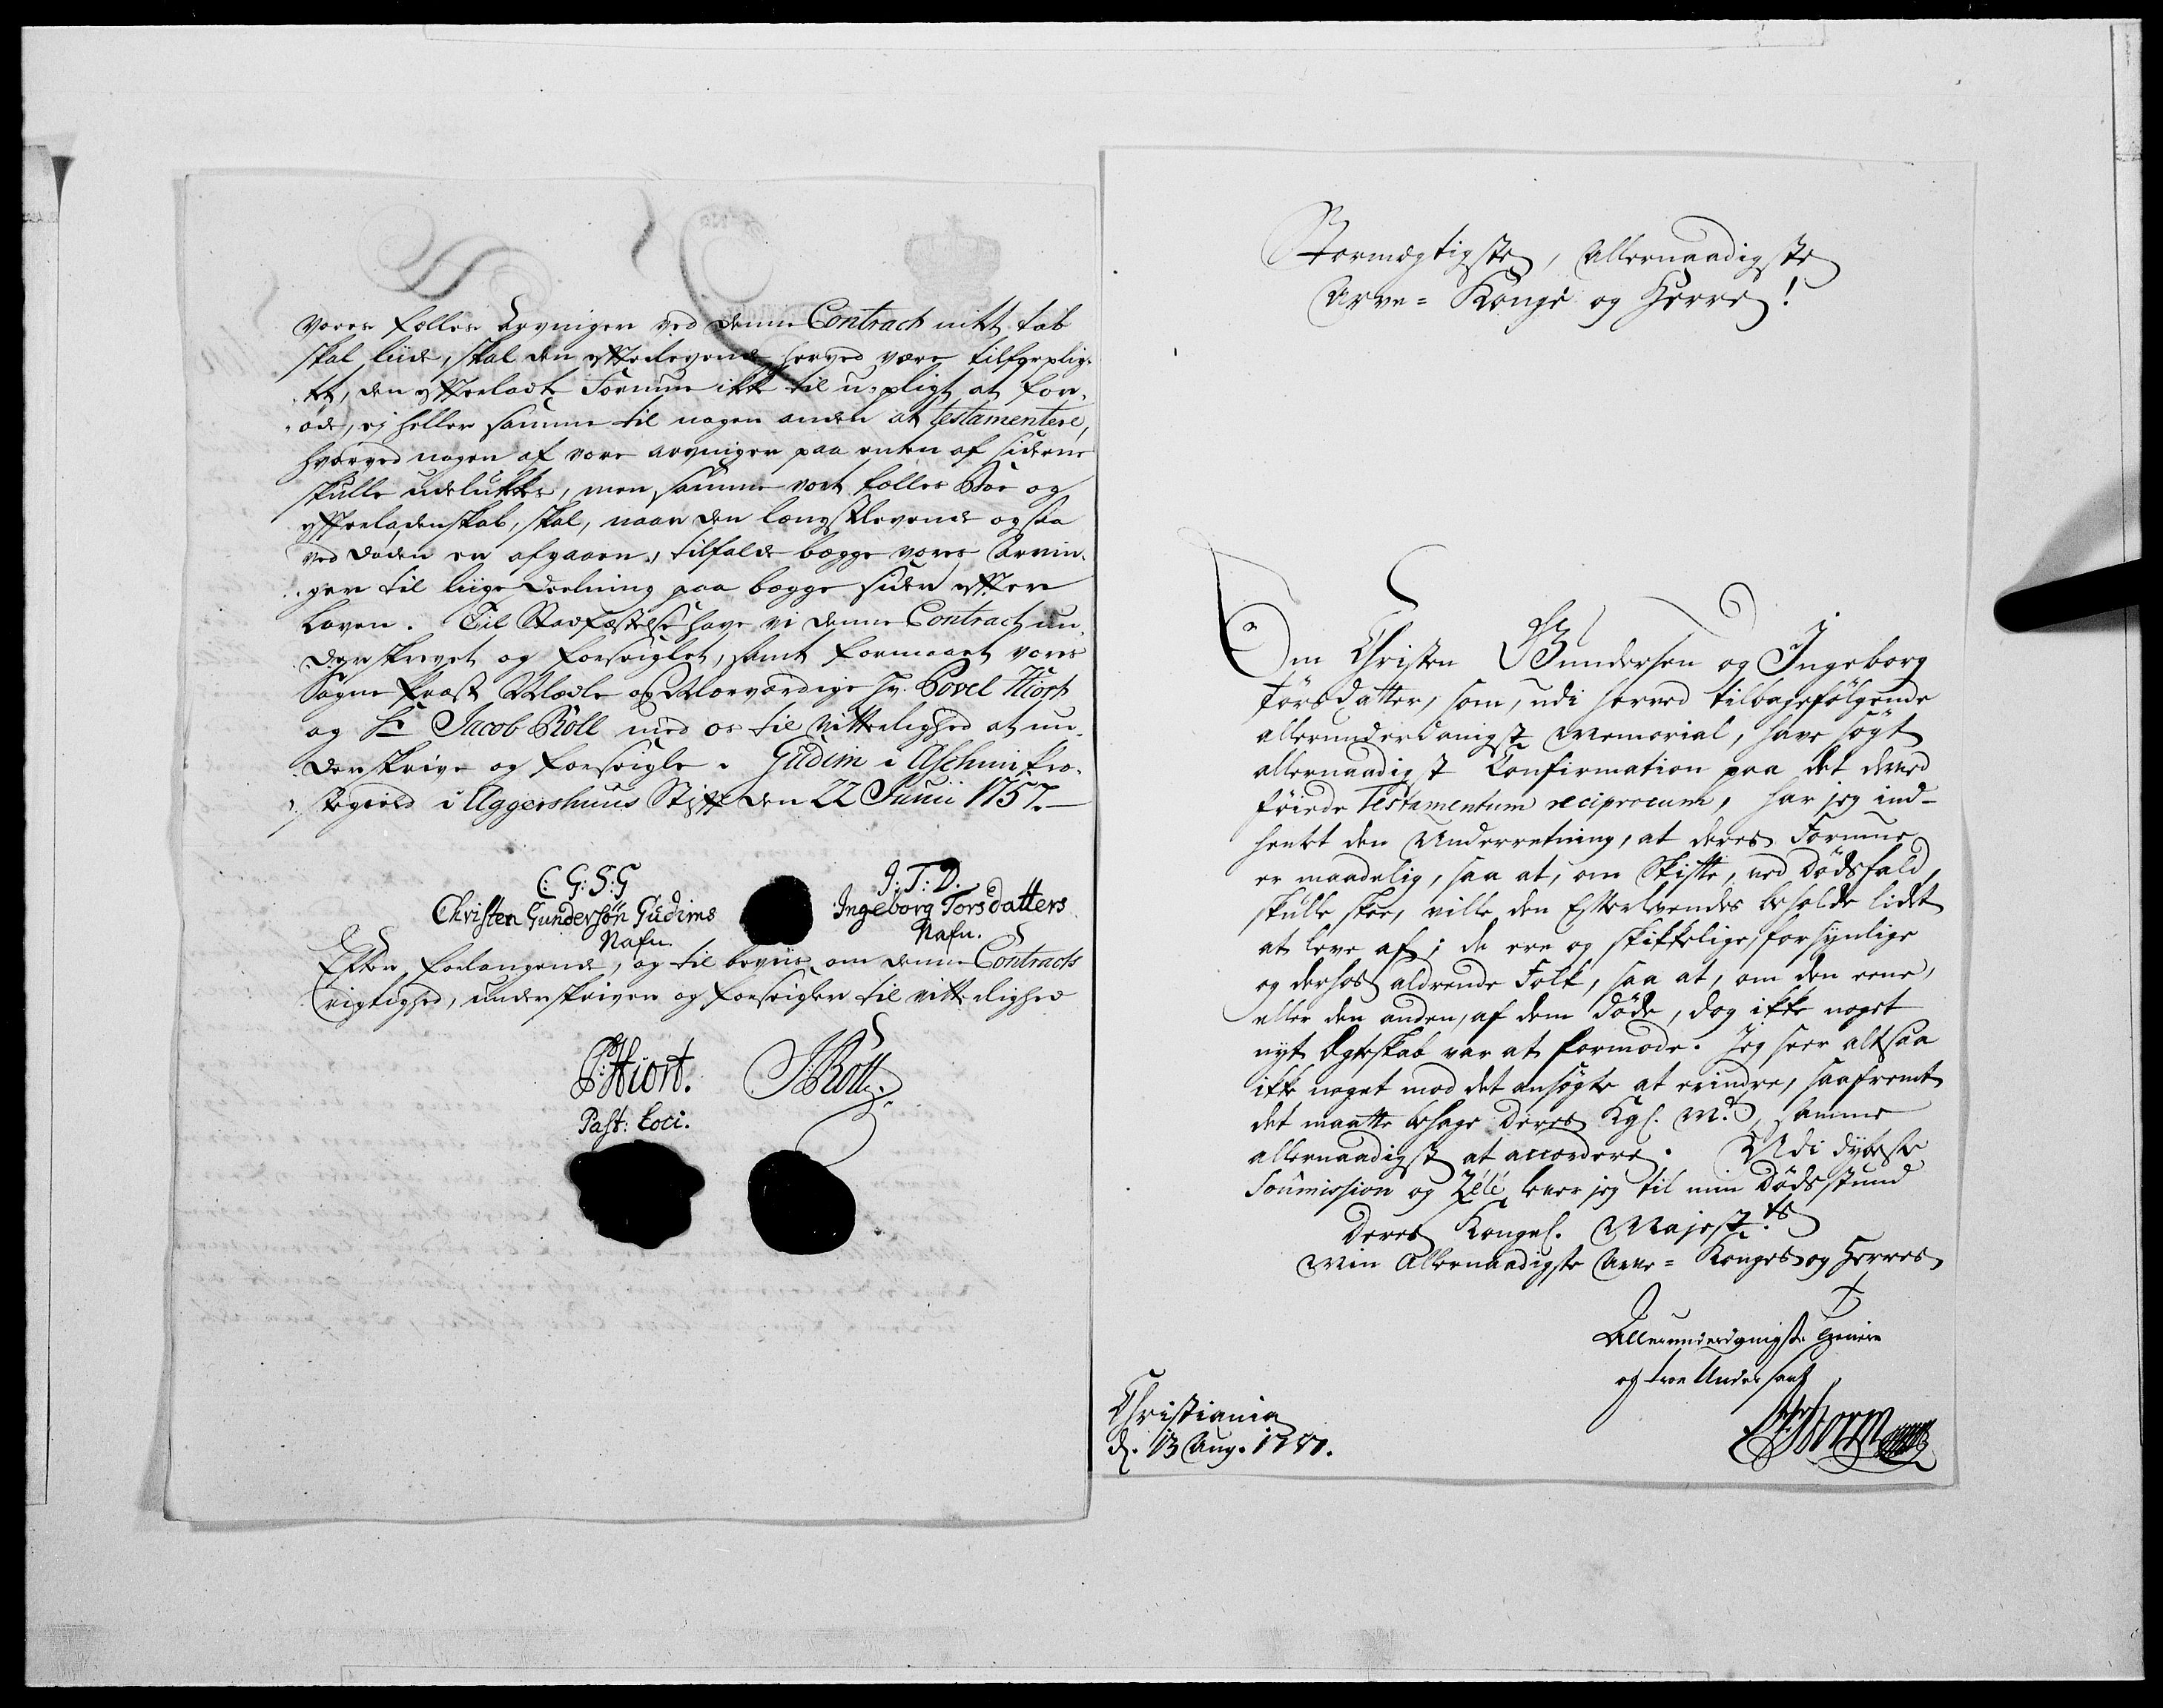 vores fælles Arvinger ved denne Contract intet tab
skal liide, skal den efterlevende herved være tilforplig-
tet, den efterladte Formue ikke til u-pligt at for-
øde, ej heller samme til nogen anden at testamentere,
hvorved nogen af vore arvinger paa enten af siderne
skulle udelukkes, men samme vort fælles Boe og
efterladenskab, skal, naar den længstlevende ogsaa
ved døden er afgaaen, tilfalde begge vores Arvin-
ger til liige deelning paa begge sider efter
Loven. Til Stadfæstelse have vi denne Contract un-
derskrevet og forseiglet, samt formaaet vores
Sogne Præst Velædle og Velærværdige Hr. Povel Hiort
og Sr Jacob Röll med os til Vitterlighed at un-
derskrive og forseigle. Güdim i Aschim Præ-
stegield i Aggershuus Stift den 22 Junii 1757.
C: G: S: G
Christen Gundersøn Güdims
Nafn.
J: T: D.
Ingeborg Torsdatters
Nafn.
Efter forlangende, og til beviis om denne Contracts
rigtighed, underskriver og forseigler til vitterlighed
P: Hiort.
Past: Loci.
J: Röll
Stormægtigste, Allernaadigste
Arve= Konge og Herre!
Om Christen Gundersen og Ingeborg
Torsdatter, som, udi herved tilbagefølgende
allerunderdanigst Memorial, have søgt
allernaadigst Confirmation paa det derved
føiede Testamentum reciprocum, har jeg ind-
hentet den Underretning, at deres Formue
er maadelig, saa at, om Skifte, ved Dødsfald,
skulle skee, ville den Efterlevendes beholde lidet
at leve af; de ere og skikkelige, forsynlige
og derhos aldrende Folk, saa at, om den eene,
eller den anden, af dem døde, dog ikke noget
nyt Ægteskab var at formode. Jeg seer altsaa
ikke noget mod det ansøgte at erindre, saafremt
det maatte behage Deres Kgl. Mt. samme
allernaadigst at accordere. Udi dybeste
Soumission og Zele lever jeg til min Dødsstund
Deres Kongel. Majestts
Min Allernaadigste Arve= Konges og Herres
Allerunderdanigste tienere
og troe Undersaat
Storm
Christiania
d. 13 Aug. 1757.